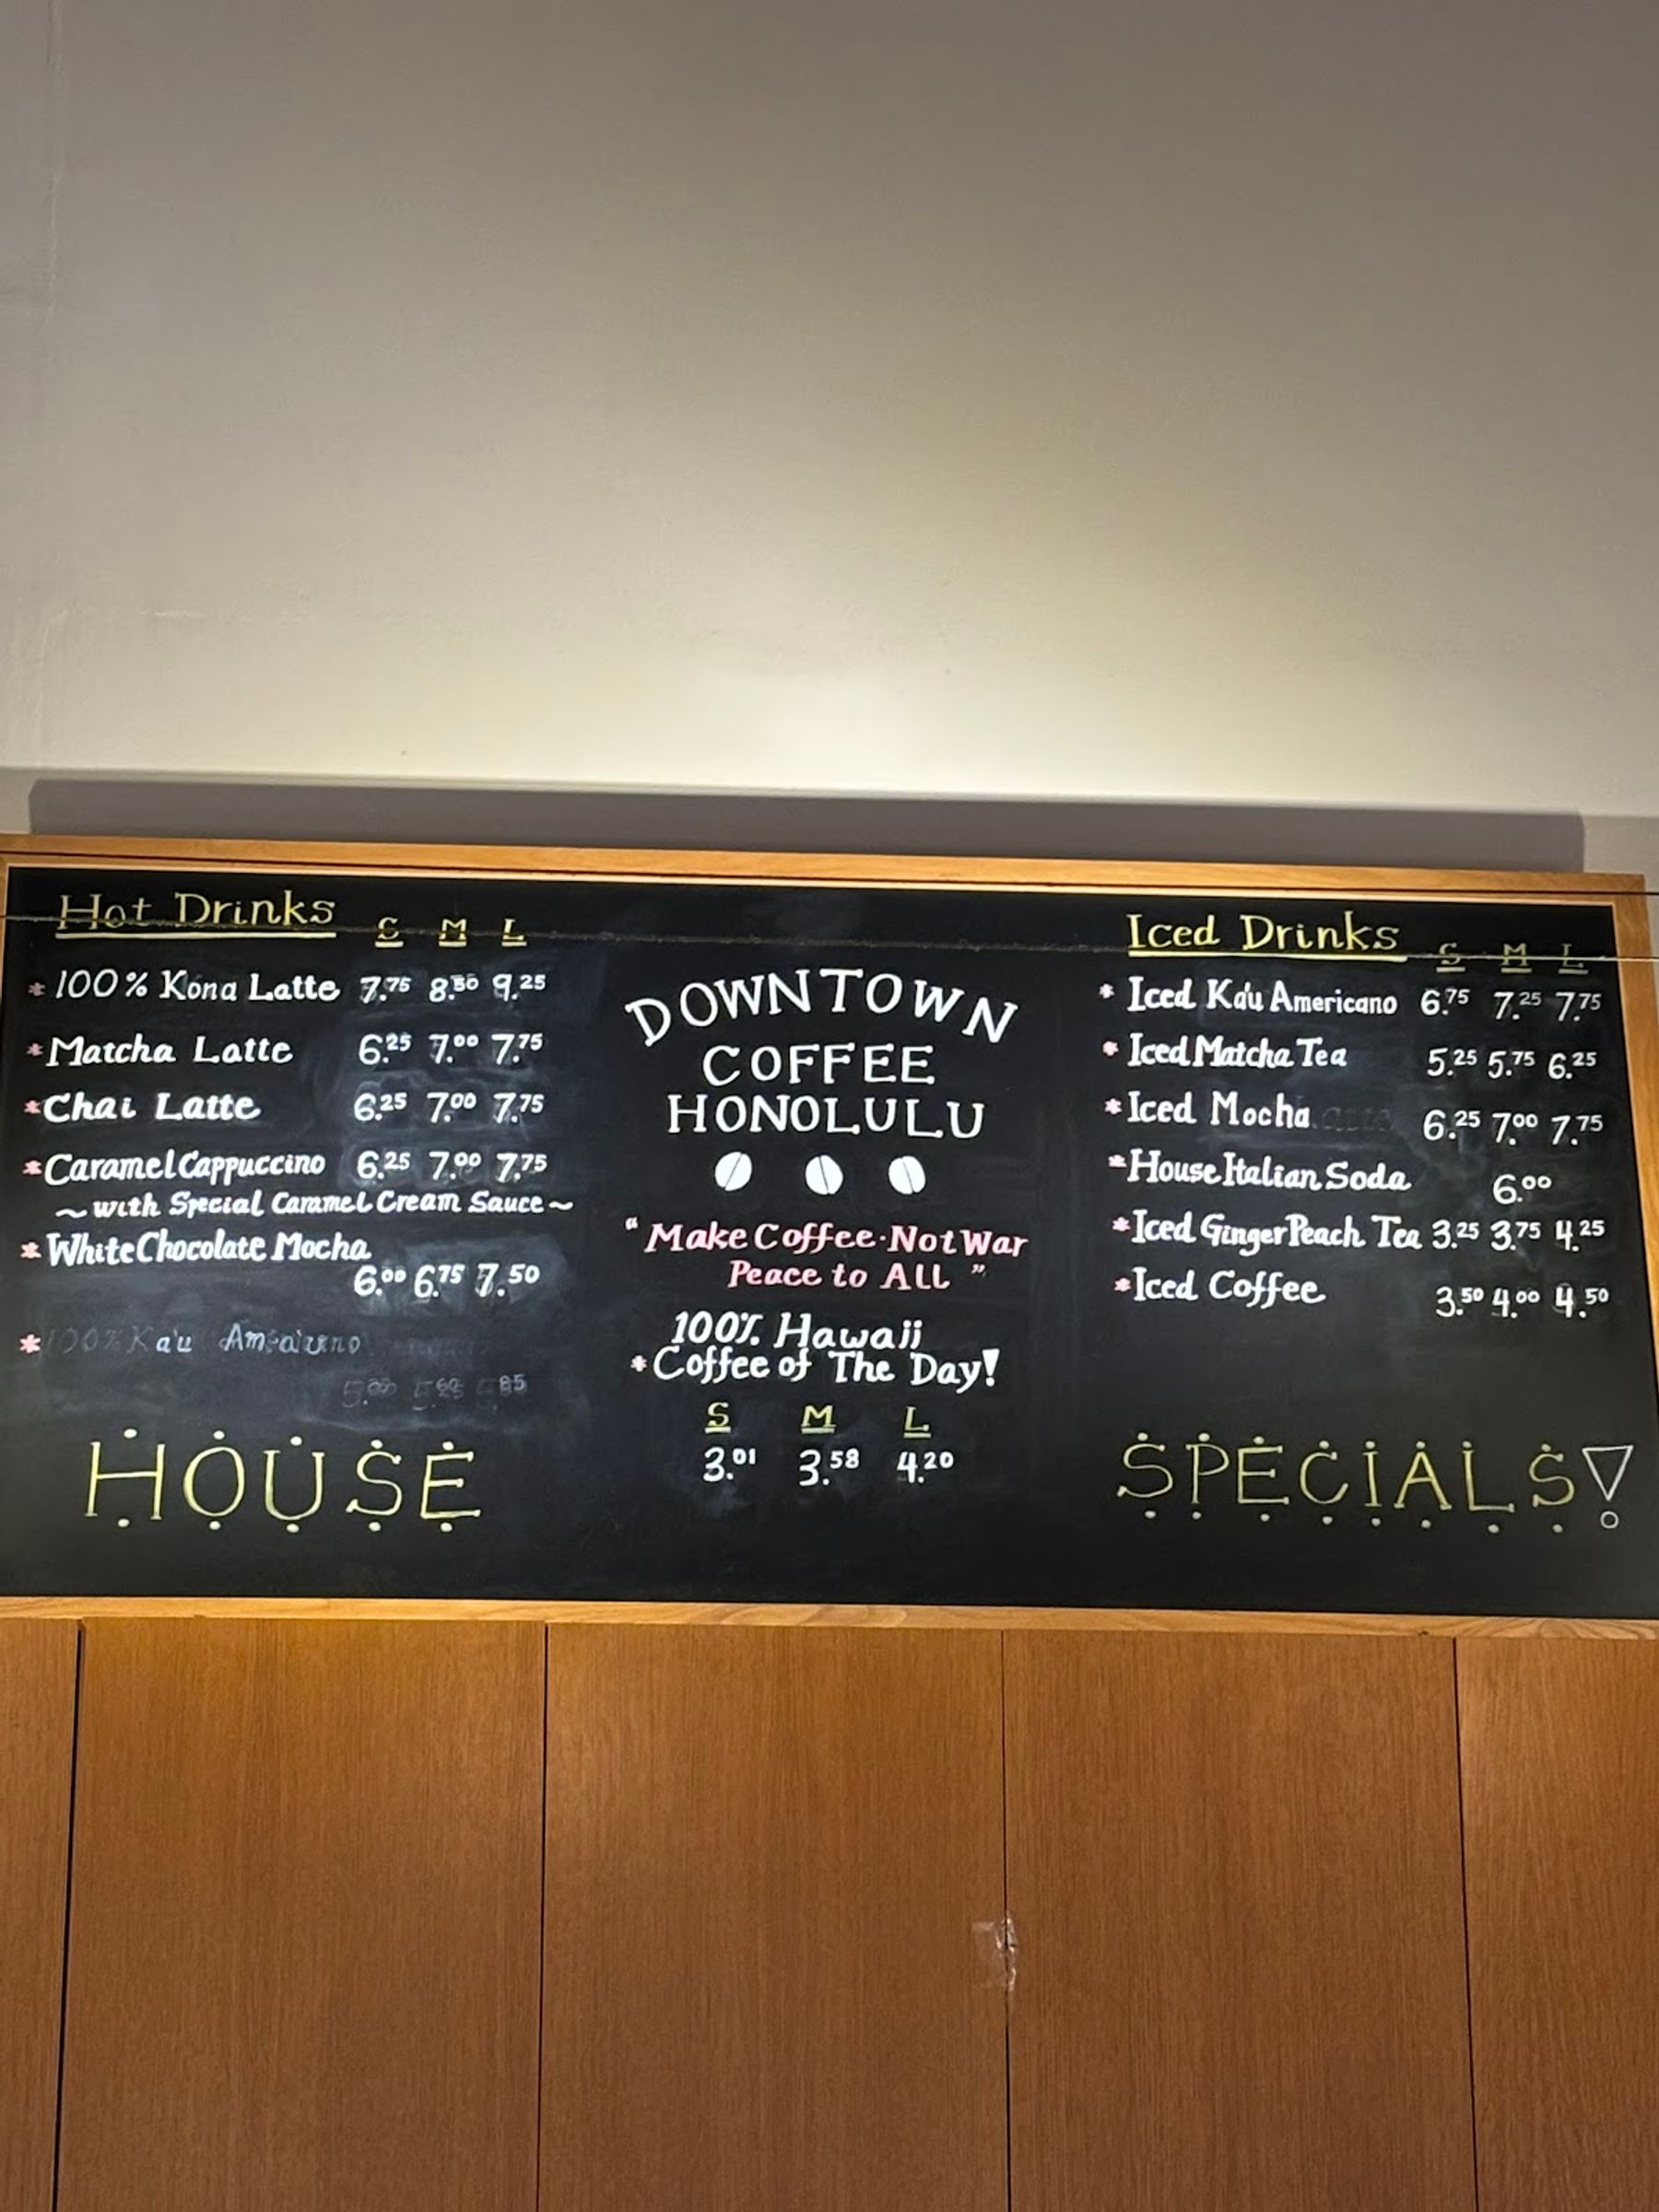 Hot Drinks S M L
* 100% Kona Latte 7.75 8.50 9.25
* Matcha Latte 6.25 7.00 7.75
* Chai Latte 6.25 7.00 7.75
* Caramel Cappuccino 6.25 7.00 7.75
~ with Special Caramel Cream Sauce ~
* White Chocolate Mocha
6.00 6.75 7.50
* 100% Ka'u
HOUSE
DOWNTOWN
COFFEE
HONOLULU
"Make Coffee·Not War
Peace to ALL"
100% Hawaii
* Coffee of The Day!
S M L
3.01 3.58 4.20
Iced Drinks S M L
* Iced Ka'u Americano 6.75 7.25 7.75
* Iced Matcha Tea 5.25 5.75 6.25
* Iced Mocha 6.25 7.00 7.75
* House Italian Soda 6.00
* Iced Ginger Peach Tea 3.25 3.75 4.25
* Iced Coffee 3.50 4.00 4.50
SPECIALS!